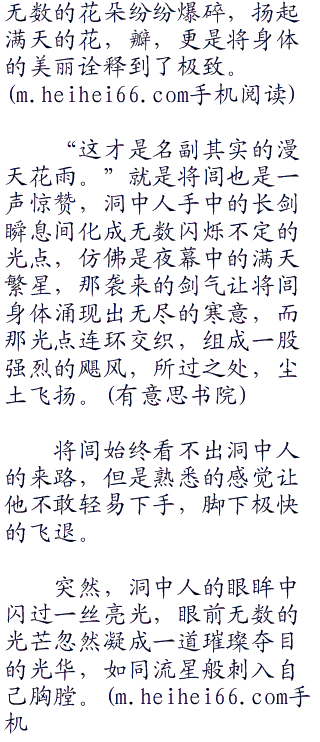 无数的花朵纷纷爆碎，扬起
满天的花，瓣，更是将身体
的美丽诠释到了极致。
(m.heihei66.com手机阅读)
“这才是名副其实的漫
天花雨。”就是将闾也是一
声惊赞，洞中人手中的长剑
瞬息间化成无数闪烁不定的
光点，仿佛是夜幕中的满天
繁星，那袭来的剑气让将闾
身体涌现出无尽的寒意，而
那光点连环交织，组成一股
强烈的飓风，所过之处，尘
土飞扬。(有意思书院)
将闾始终看不出洞中人
的来路，但是熟悉的感觉让
他不敢轻易下手，脚下极快
的飞退。
突然，洞中人的眼眸中
闪过一丝亮光，眼前无数的
光芒忽然凝成一道璀璨夺目
的光华，如同流星般刺入自
己胸膛。(m.heihei66.com手
机